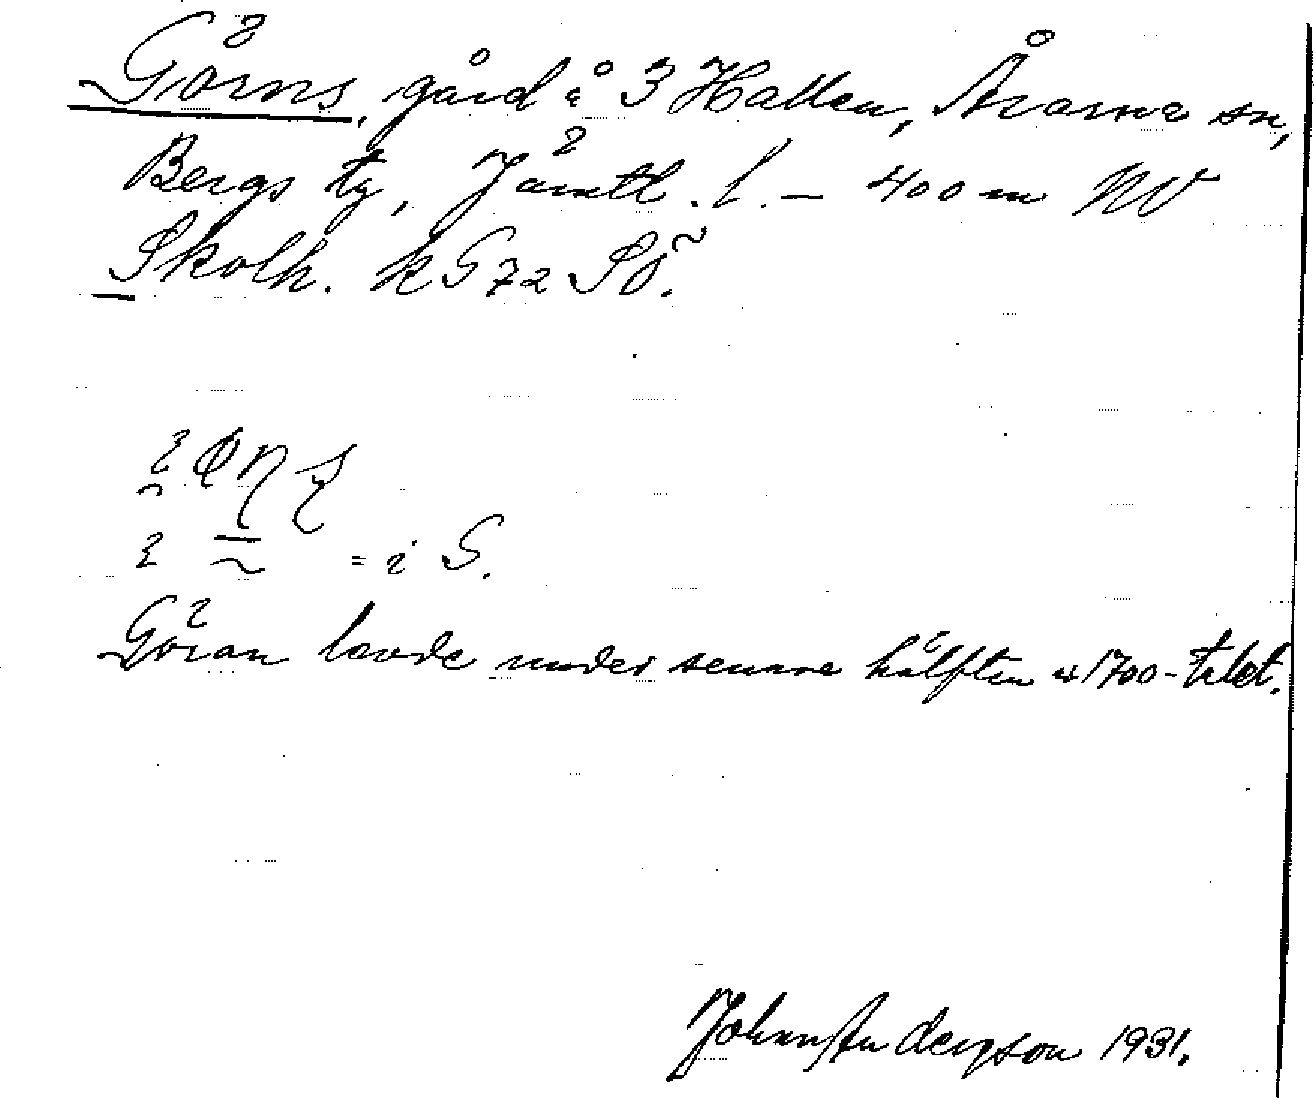 Görns, gård å 3 Hallen, Åsarne sn,
Bergs tg, Jämtl. l. – 400 m NV
Skolh. k G 72 SÖ.
= i G.
Göran levde under senare hälften a 1700-talet.
John Anderson 1931.